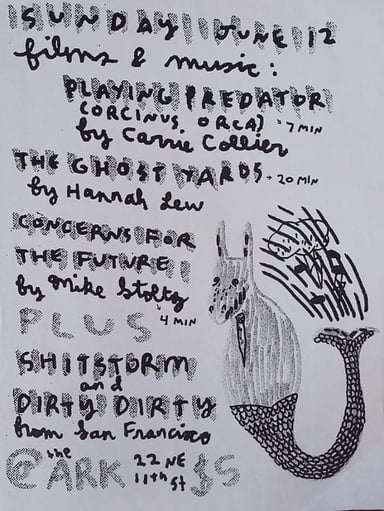 SUNDAY JUNE 12
films & music:
PLAYING PREDATOR
(ORCINUS ORCA) - 7 MIN
by Carrie Collier
THE GHOST YARDS - 20 MIN
by Hannah Lew
CONCERNS FOR
THE FUTURE
by Mike Stoltz
4 MIN
PLUS
SHITSTORM
and
DIRTY DIRTY
from San Francisco
@ the ARK 22 NE 11th St $5